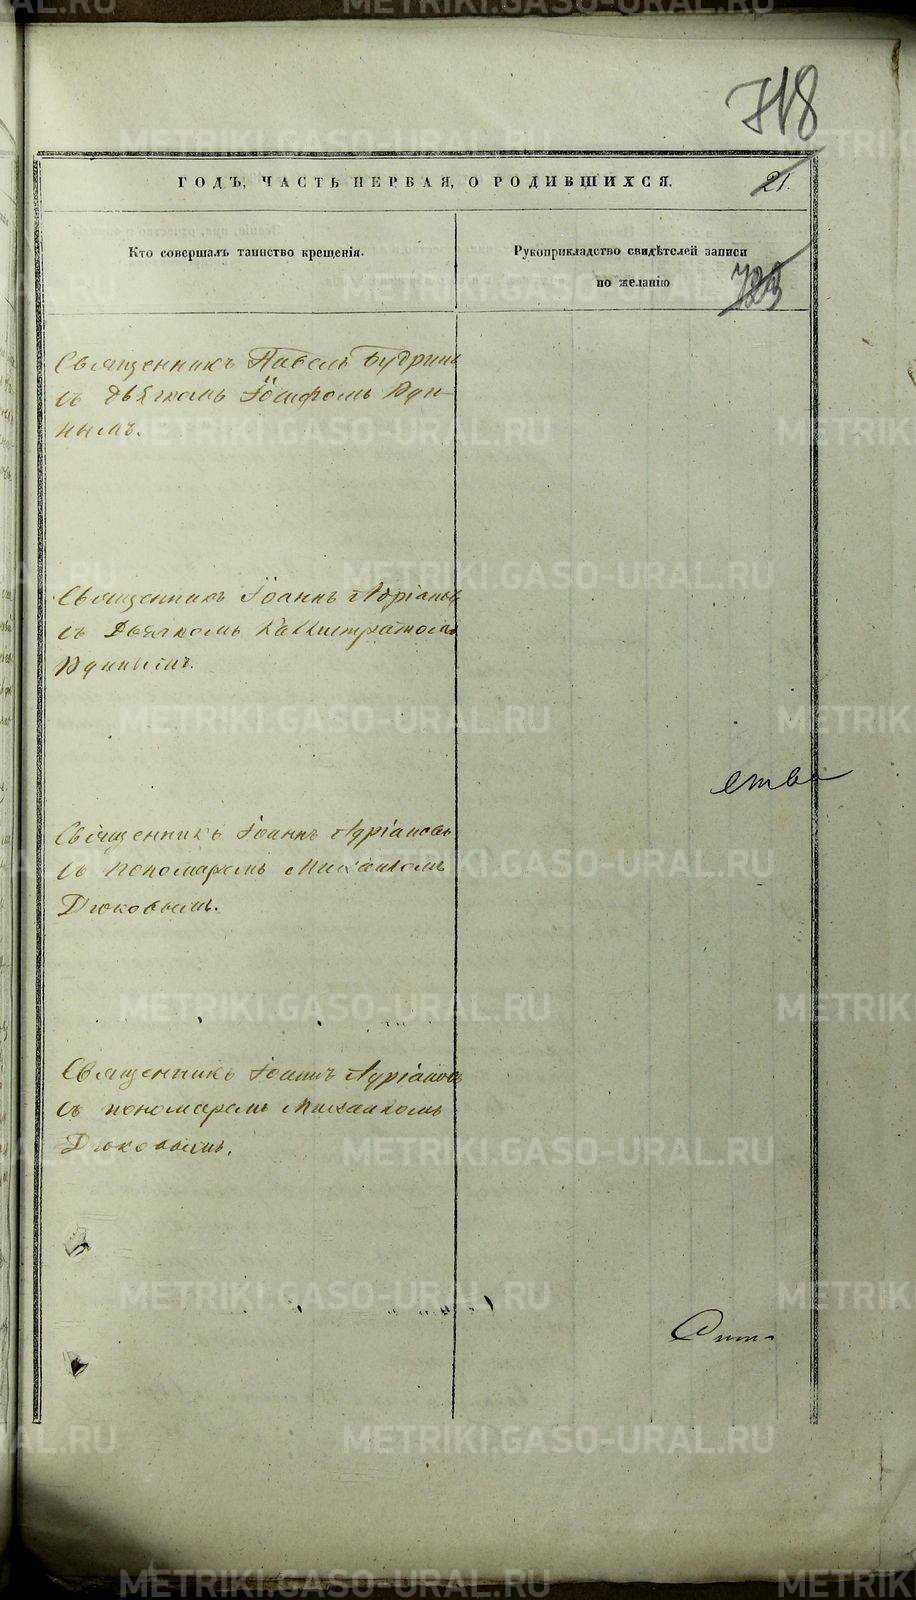 718
ГОДЪ, ЧАСТЬ ПЕРВАЯ, О РОДИВШИХСЯ.
21.
Кто совершалъ таинство крещенія.
Рукоприкладство свидѣтелей записи
по желанію
Священникъ Павелъ Будринъ
съ дьячкомъ Іосифомъ
Священникъ Іоаннъ Адріановъ
съ Дьячкомъ Каллистратомъ
ства
Священникъ Іоаннъ Адріановъ
съ пономаремъ Михаиломъ
Дюковымъ.
Священникъ Іоаннъ Адріановъ
съ пономаремъ Михаиломъ
Дюковымъ.
METRIKI.GASO-URAL.RU